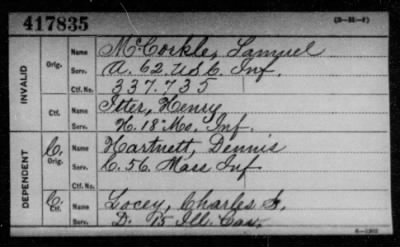 417835 (3-31-F)
INVALID
Orig. Name McCorkle, Samuel
Serv. A. 62. U.S.C. Inf.
Ctf. No. 337.735
Ctf. Name Itter, Henry
Serv. H. 18" Mo. Inf.
DEPENDENT
C. Orig. Name Hartnett, Dennis
Serv. C. 56. Mass Inf
C. Ctf. Name Locey, Charles
Serv. D. 15 Ill. Cav.